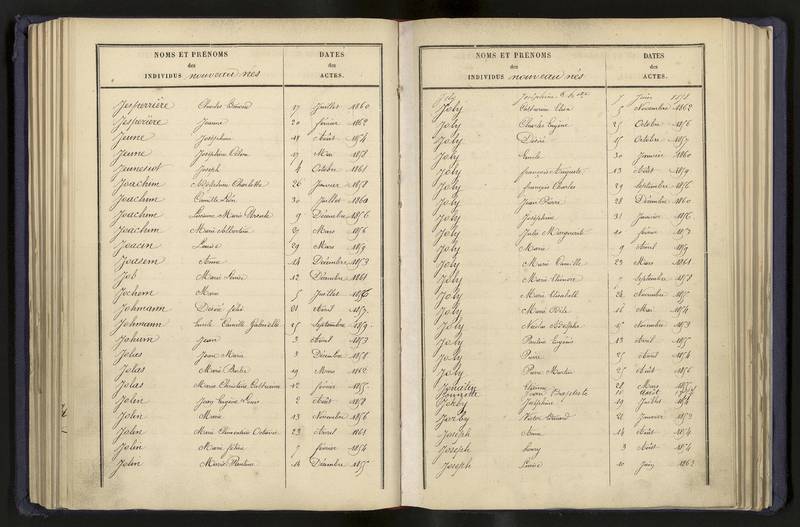 NOMS ET PRÉNOMS DATES
des des
INDIVIDUS nouveau nés ACTES.
Jesperrière Charles 17 Juillet 1860
Jesperière Jeanne 20 février 1862
Jeune Joséphine 18 Août 1854
Jeune Joséphine 17 Mai 1858
Joseph 4 Octobre 1861
Joachim Joséphine Charlotte 26 Janvier 1858
Joachim Camille Léon 30 Juillet 1860
Joachim Marie 9 Décembre 1856
Joachim Marie Albertine Mars 1856
Joacin Louise 29 Mars 1859
Joasem Anne 14 Décembre 1853
Job Marie 12 Décembre 1861
Jochem Marie 5 Juillet 1856
Johmann Désiré félix 21 Avril 1857
Johmann Camille Gabrielle 25 Septembre 1859
Jean 3 Avril 1853
Jolas Jean Marie 3 Décembre 1858
Jolas Marie 19 Mars 1862
Jolas Marie Christine Catherine 12 février 1855
Jolin Jean Eugène 2 Août 1858
Jolin Marie 13 Novembre 1856
Jolin Marie Clémentine 23 Avril 1861
Jolin Marie 7 février 1854
Jolin Marie 14 Décembre 1855
NOMS ET PRÉNOMS DATES
des des
INDIVIDUS nouveau nés ACTES.
Joly Joséphine 7 Juin 1858
Joly Catherine 5 Novembre 1862
Joly Charles Eugène 25 Octobre 1856
Joly Désiré 15 Octobre 1857
Joly Emile 30 Janvier 1860
Joly françois Auguste 13 Août 1859
Joly françois Charles 29 Septembre 1856
Joly Jean Pierre 28 Décembre 1860
Joly Joséphine 31 Janvier 1856
Joly Julie Marguerite 20 février 1853
Joly Marie 9 Avril 1859
Joly Marie Camille 23 Mars 1861
Joly Marie 7 Septembre 1858
Joly Marie Elisabeth 24 Novembre 1855
Joly Marie 16 Mai 1854
Joly Nicolas Adolphe 15 Novembre 1859
Joly Pauline Eugénie 13 Avril 1855
Joly Pierre 25 Août 1854
Joly Pierre 25 Août 1856
Etienne 21 Mars 1855
Jean Baptiste 10 Août
Joséphine 19 Juillet 1854
Victor 21 Janvier 1852
Joseph Anne 14 Août 1854
Joseph 3 Août 1854
Joseph Louise 10 Juin 1862